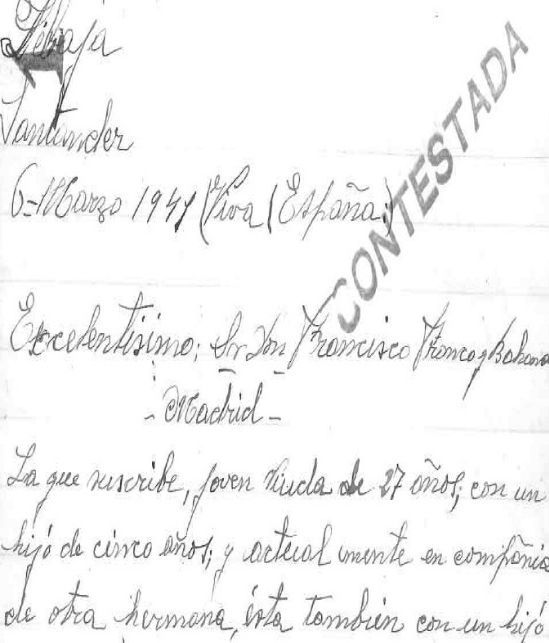 Santander
6-Marzo 1941 (Viva (España;)
CONTESTADA
Excelentisimo; Sr Don Francisco Franco y Bahamo
- Madrid -
La que suscribe, joven viuda de 27 años; con un
hijó de cinco años; y actual mente en compañia
de otra hermana, ésta tambien con un hijó